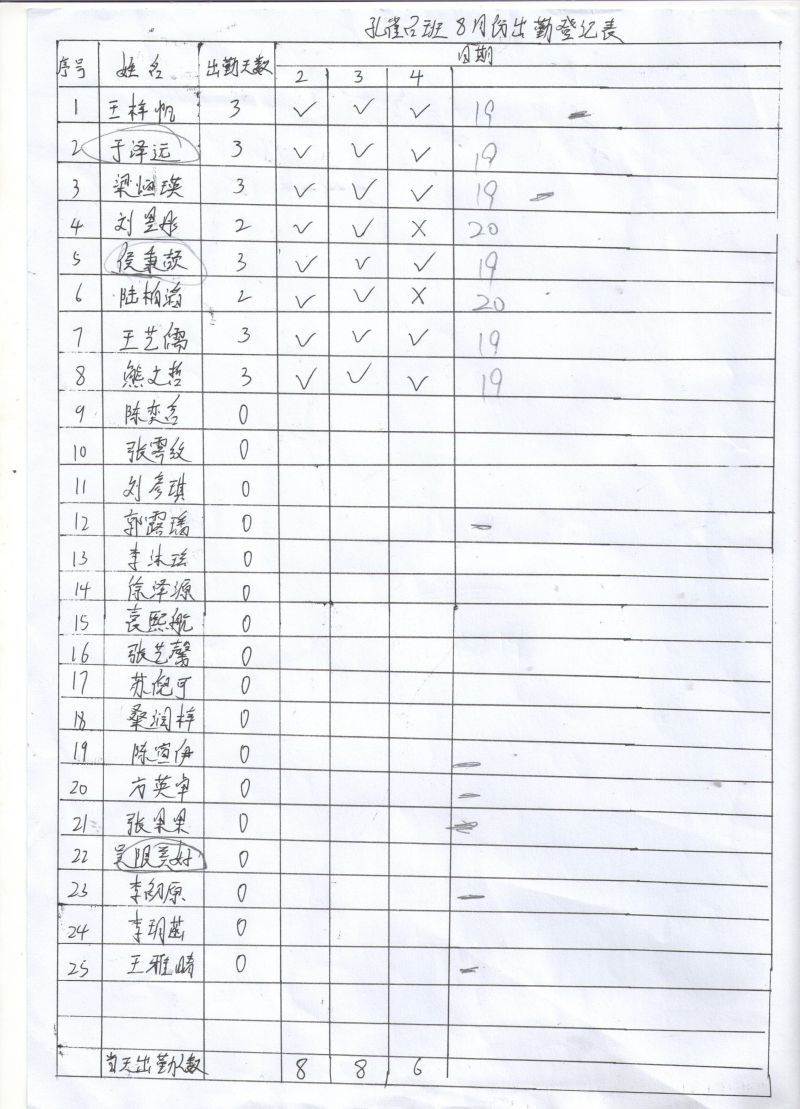 孔雀召班8月份出勤登记表
序号 姓名 出勤天数 日期
2 3 4
1 王梓帆 3 ✓ ✓ ✓ 19
2 于泽远 3 ✓ ✓ ✓ 19
3 梁恒瑛 3 ✓ ✓ ✓ 19
4 刘昱彤 2 ✓ ✓ X 20
5 侯秉颉 3 ✓ ✓ ✓ 19
6 陆柏瀚 2 ✓ ✓ X 20
7 王艺儒 3 ✓ ✓ ✓ 19
8 熊文哲 3 ✓ ✓ ✓ 19
9 陈奕名 0
10 张雯纹 0
11 刘彦琪 0
12 郭露瑶 0
13 李沐瑶 0
14 徐泽源 0
15 袁熙航 0
16 张艺馨 0
17 苏倪可 0
18 桑润梓 0
19 陈宣伊 0
20 方英卓 0
21 张果果 0
22 吴限美好 0
23 李朗原 0
24 李玥菡 0
25 王雅晴 0
当天出勤人数 8 8 6